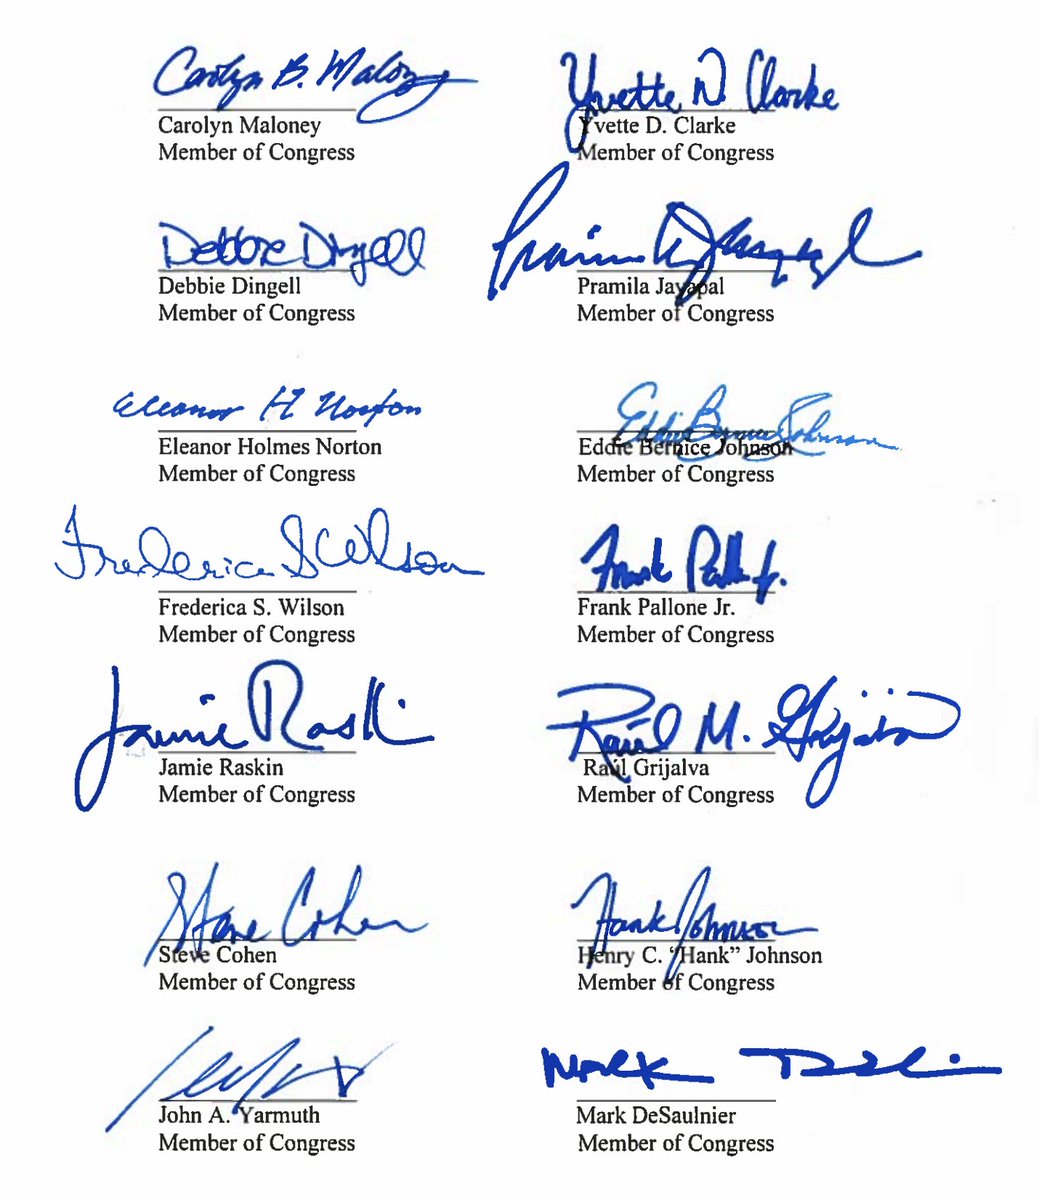 Carolyn B. Maloney
Yvette D. Clarke
Carolyn Maloney
Yvette D. Clarke
Member of Congress
Member of Congress
Debbie Dingell
Pramila Jayapal
Debbie Dingell
Pramila Jayapal
Member of Congress
Member of Congress
Eleanor H Norton
Eddie Bernice Johnson
Eleanor Holmes Norton
Eddie Bernice Johnson
Member of Congress
Member of Congress
Frederica S Wilson
Frank Pallone Jr.
Frederica S. Wilson
Frank Pallone Jr.
Member of Congress
Member of Congress
Jamie Raskin
Raúl M. Grijalva
Jamie Raskin
Raúl Grijalva
Member of Congress
Member of Congress
Steve Cohen
Hank Johnson
Steve Cohen
Henry C. “Hank” Johnson
Member of Congress
Member of Congress
Mark
John A. Yarmuth
Mark DeSaulnier
Member of Congress
Member of Congress